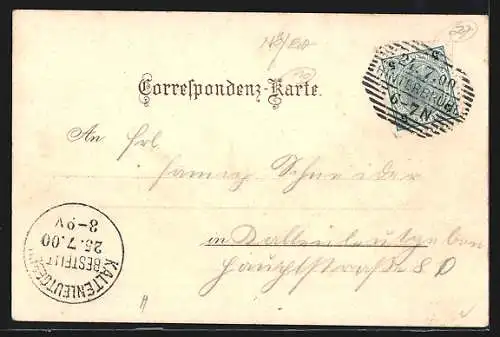 Correspondenz-Karte.
24.7.00
HINTERBRÜHL
6-7N
An Frl.
Schneider
in Kaltenleutgeben
Hauptstraße 8
KALTENLEUTGEBEN
BESTELLT
25.7.00
8-9V